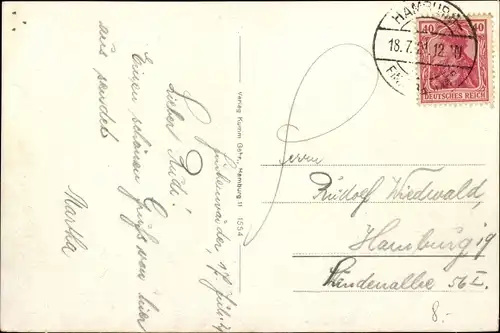 Lieber Rudi!
Einen schönen Gruß von hier
aus sendet
Martha
Verlag Kumm Gebr., Hamburg 11 1554
HAMBURG
18.7.21.12
40 40
DEUTSCHES REICH
Herrn
Rudolf Wiedwald,
Hamburg 19
Lindenallee 56 I.
8.-